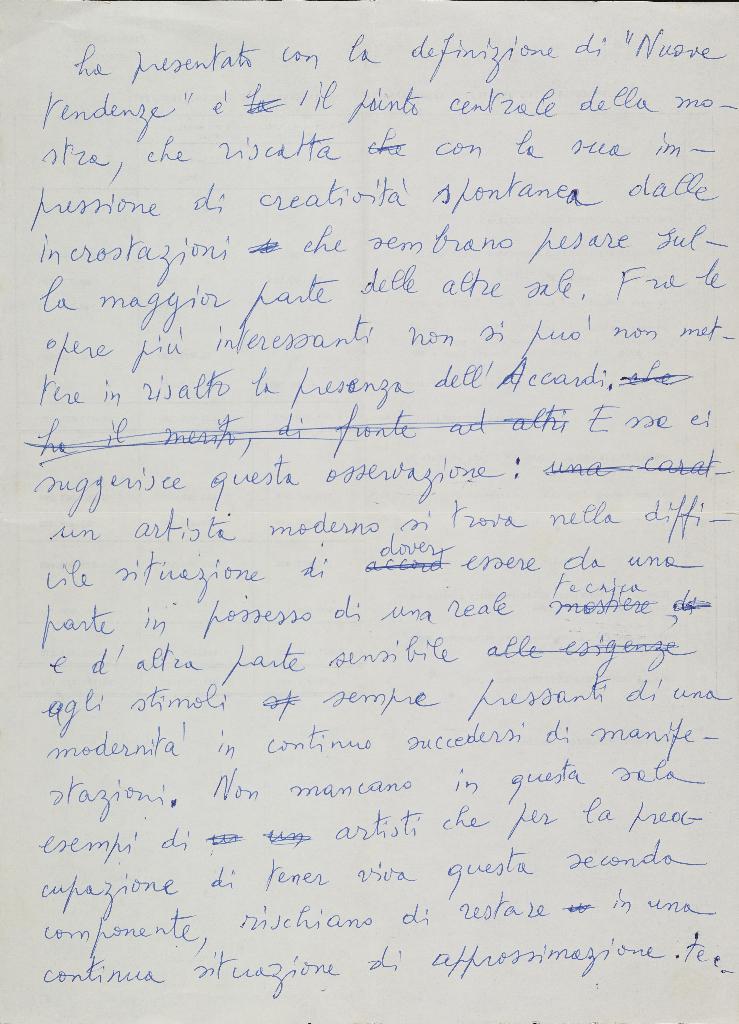 ha presentato con la definizione di "Nuove
Tendenze" è la il punto centrale della mo-
stra, che riscatta che con la sua im-
pressione di creatività spontanea dalle
incrostazioni che sembrano pesare sul-
la maggior parte delle altre sale. Fra le
opere più interessanti non si può non met-
tere in risalto la presenza dell'Accardi. che
ha il merito, di fronte ad altri Essa ci
suggerisce questa osservazione: una carat-
un artista moderno si trova nella diffi-
cile situazione di accord dover essere da una
parte in possesso di una reale mestiere tecnica di
e d'altra parte sensibile alle esigenze
agli stimoli sempre pressanti di una
modernità in continuo succedersi di manife-
stazioni. Non mancano in questa sala
esempi di un artisti che per la preoc
cupazione di tener viva questa seconda
componente, rischiano di restare in una
continua situazione di approssimazione. tec-